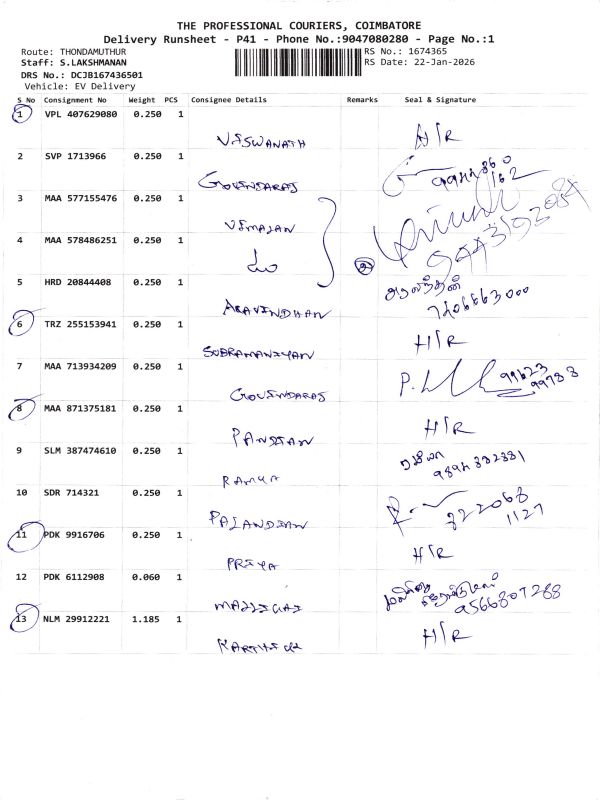 THE PROFESSIONAL COURIERS, COIMBATORE
Delivery Runsheet - P41 - Phone No.:9047080280 - Page No.:1
Route: THONDAMUTHUR
RS No.: 1674365
Staff: S.LAKSHMANAN
RS Date: 22-Jan-2026
DRS No.: DCJB167436501
Vehicle: EV Delivery
S No Consignment No Weight PCS Consignee Details Remarks Seal & Signature
1 VPL 407629080 0.250 1
VISWANATH H/R
2 SVP 1713966 0.250 1
GOVINDARAJ
3 MAA 577155476 0.250 1
VIMALAN
4 MAA 578486251 0.250 1
2
5 HRD 20844408 0.250 1
ARAVINDHAN அரவிந்தன்
6 TRZ 255153941 0.250 1
SUBRAMANIYAN H/R
7 MAA 713934209 0.250 1
GOVINDARAJ 99623
99788
8 MAA 871375181 0.250 1
PANDIAN H/R
9 SLM 387474610 0.250 1
RAMYA ரம்யா
9894332381
10 SDR 714321 0.250 1
PALANDIAN 322068
1127
11 PDK 9916706 0.250 1
PRIYA H/R
12 PDK 6112908 0.060 1
MALLIGAI
9566807288
13 NLM 29912221 1.185 1
KARTHICK H/R